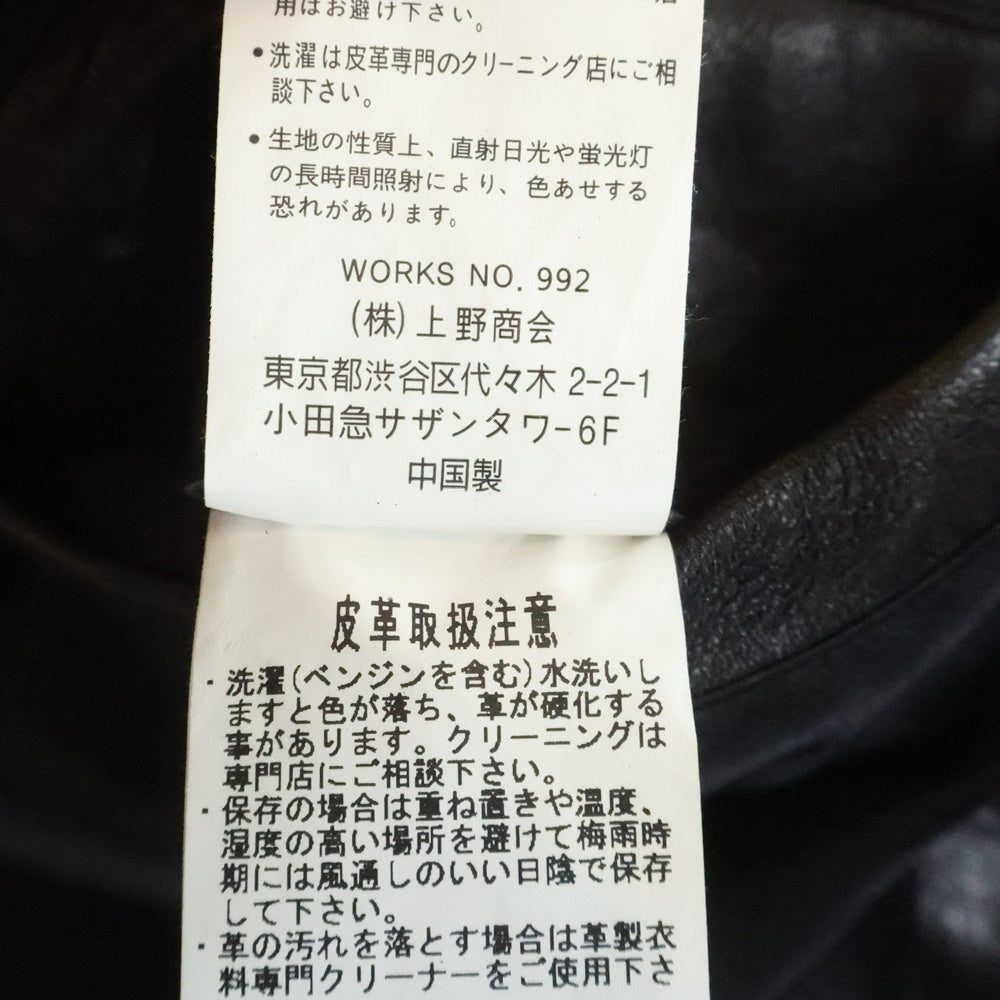 用はお避け下さい。
•洗濯は皮革専門のクリーニング店にご相
談下さい。
•生地の性質上、直射日光や蛍光灯
の長時間照射により、色あせする
恐れがあります。
WORKS NO. 992
(株)上野商会
東京都渋谷区代々木 2-2-1
小田急サザンタワー6F
中国製
皮革取扱注意
・洗濯(ベンジンを含む)水洗いし
ますと色が落ち、革が硬化する
事があります。クリーニングは
専門店にご相談下さい。
・保存の場合は重ね置きや温度、
湿度の高い場所を避けて梅雨時
期には風通しのいい日陰で保存
して下さい。
・革の汚れを落とす場合は革製衣
料専門クリーナーをご使用下さ